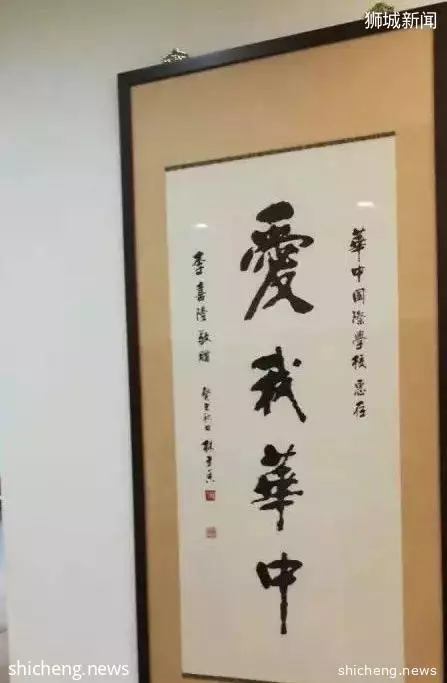 狮城新闻
華中国際學校惠存
愛我華中
李嘉隆敬贈
shicheng.news
shicheng.news